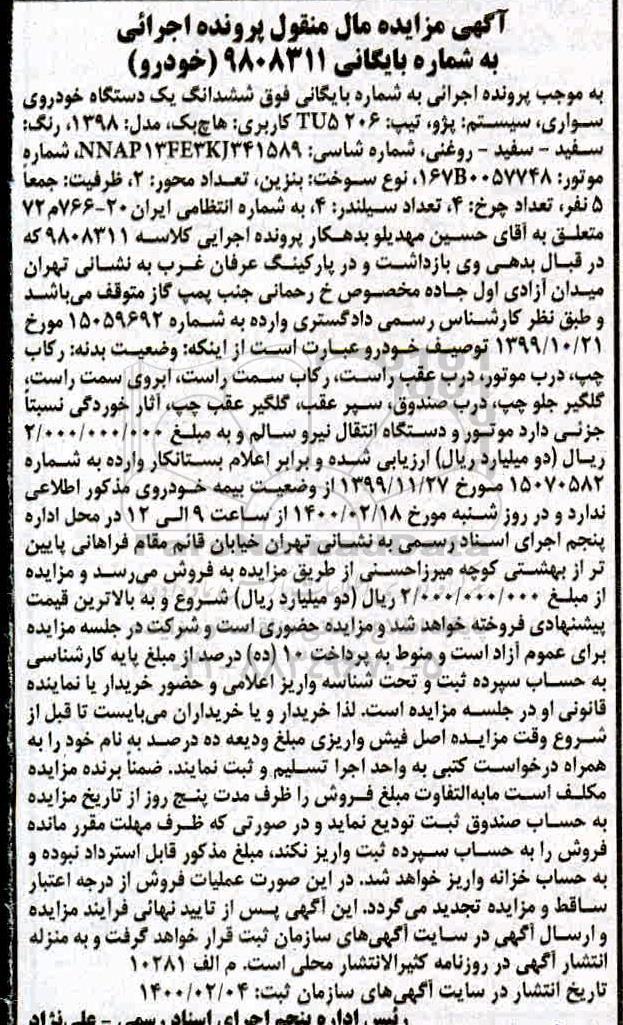 آگهی مزایده مال منقول پرونده اجرائی
به شماره بایگانی ۹۸۰۸۳۱۱ (خودرو)
به موجب پرونده اجرائی به شماره بایگانی فوق ششدانگ یک دستگاه خودروی
سواری، سیستم: پژو، تیپ: ۲۰۶ TU۵ کاربری: هاچ‌بک، مدل: ۱۳۹۸، رنگ:
سفید - سفید - روغنی، شماره شاسی: NNAP۱۳FE۳KJ۳۴۱۵۸۹، شماره
موتور: ۱۶۷B۰۰۵۷۷۴۸، نوع سوخت: بنزین، تعداد محور: ۲، ظرفیت: جمعاً
۵ نفر، تعداد چرخ: ۴، تعداد سیلندر: ۴، به شماره انتظامی ایران ۲۰-۷۶۶م۷۲
متعلق به آقای حسین مهدیلو بدهکار پرونده اجرایی کلاسه ۹۸۰۸۳۱۱ که
در قبال بدهی وی بازداشت و در پارکینگ عرفان غرب به نشانی تهران
میدان آزادی اول جاده مخصوص خ رحمانی جنب پمپ گاز متوقف می‌باشد
و طبق نظر کارشناس رسمی دادگستری وارده به شماره ۱۵۰۵۹۶۹۲ مورخ
۱۳۹۹/۱۰/۲۱ توصیف خودرو عبارت است از اینکه: وضعیت بدنه: رکاب
چپ، درب موتور، درب عقب راست، رکاب سمت راست، ابروی سمت راست،
گلگیر جلو چپ، درب صندوق، سپر عقب، گلگیر عقب چپ، آثار خوردگی نسبتاً
جزئی دارد موتور و دستگاه انتقال نیرو سالم و به مبلغ ۲/۰۰۰/۰۰۰/۰۰۰
ریال (دو میلیارد ریال) ارزیابی شده و برابر اعلام بستانکار وارده به شماره
۱۵۰۷۰۵۸۲ مورخ ۱۳۹۹/۱۱/۲۷ از وضعیت بیمه خودروی مذکور اطلاعی
ندارد و در روز شنبه مورخ ۱۴۰۰/۰۲/۱۸ از ساعت ۹ الی ۱۲ در محل اداره
پنجم اجرای اسناد رسمی به نشانی تهران خیابان قائم مقام فراهانی پایین
تر از بهشتی کوچه میرزاحسنی از طریق مزایده به فروش می‌رسد و مزایده
از مبلغ ۲/۰۰۰/۰۰۰/۰۰۰ ریال (دو میلیارد ریال) شروع و به بالاترین قیمت
پیشنهادی فروخته خواهد شد و مزایده حضوری است و شرکت در جلسه مزایده
برای عموم آزاد است و منوط به پرداخت ۱۰ (ده) درصد از مبلغ پایه کارشناسی
به حساب سپرده ثبت و تحت شناسه واریز اعلامی و حضور خریدار یا نماینده
قانونی او در جلسه مزایده است. لذا خریدار و یا خریداران می‌بایست تا قبل از
شروع وقت مزایده اصل فیش واریزی مبلغ ودیعه ده درصد به نام خود را به
همراه درخواست کتبی به واحد اجرا تسلیم و ثبت نمایند. ضمناً برنده مزایده
مکلف است مابه‌التفاوت مبلغ فروش را ظرف مدت پنج روز از تاریخ مزایده
به حساب صندوق ثبت تودیع نماید و در صورتی که ظرف مهلت مقرر مانده
فروش را به حساب سپرده ثبت واریز نکند، مبلغ مذکور قابل استرداد نبوده و
به حساب خزانه واریز خواهد شد. در این صورت عملیات فروش از درجه اعتبار
ساقط و مزایده تجدید می‌گردد. این آگهی پس از تایید نهائی فرآیند مزایده
و ارسال آگهی در سایت آگهی‌های سازمان ثبت قرار خواهد گرفت و به منزله
انتشار آگهی در روزنامه کثیرالانتشار محلی است. م الف ۱۰۲۸۱
تاریخ انتشار در سایت آگهی‌های سازمان ثبت: ۱۴۰۰/۰۲/۰۴
رئیس اداره پنجم اجرای اسناد رسمی - علی‌نژاد